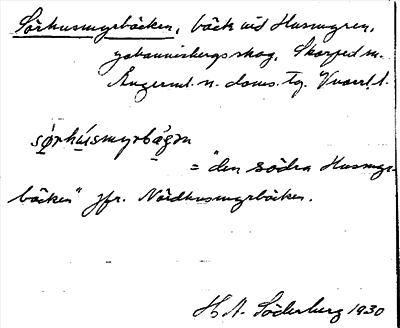 Sörhusmyrbäcken, bäck vid Husmyren,
Johannisbergs skog, Skorped sn.
Ångerml. n. doms. tg. Vuxrl.
sǫ́rhúsmyrbä̀gɔn
= "den södra Husmyr-
bäcken" jfr. Nördhusmyrbäcken.
H. A. Söderberg 1930